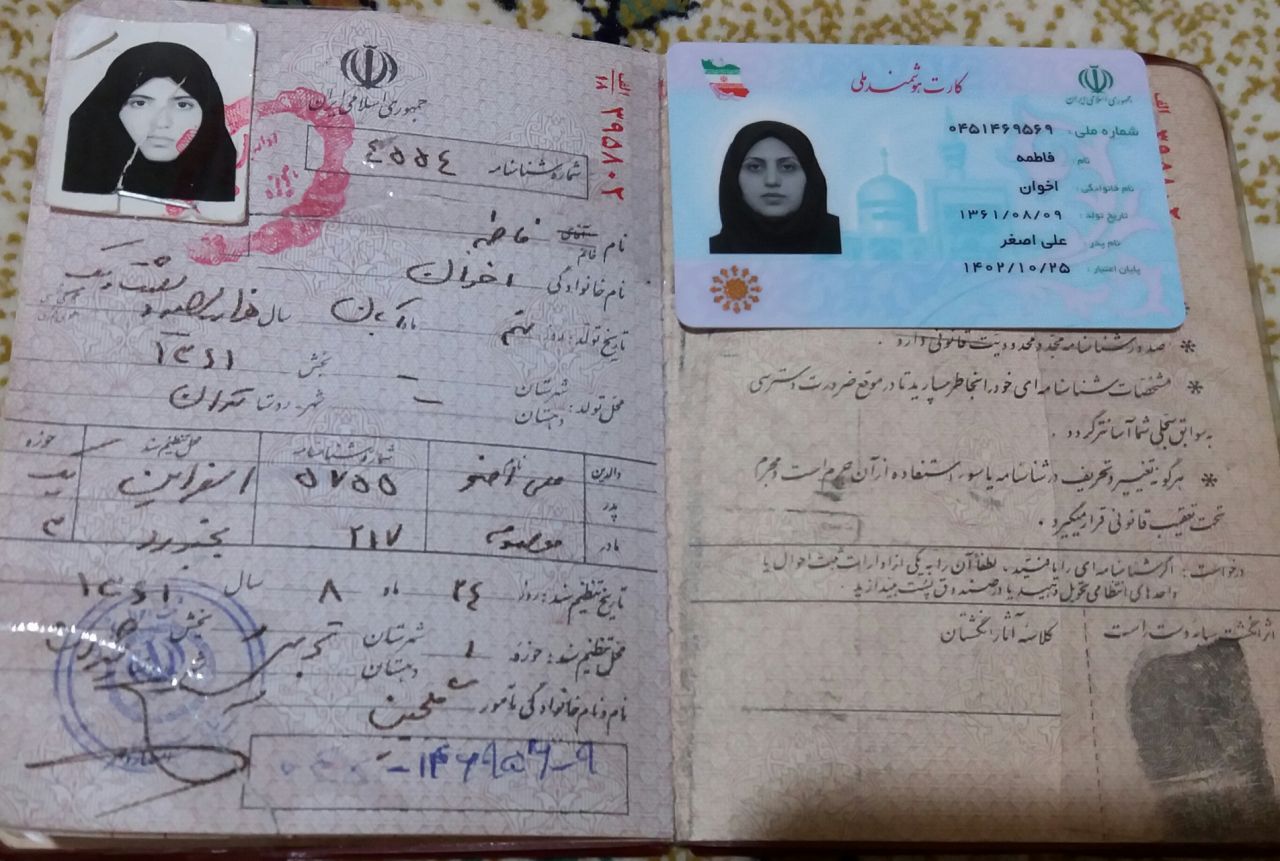 جمهوری اسلامی ایران
الف
۱۸
۳۹۵۸۰۲
شماره شناسنامه ۴۵۵۴
نام فاطمه
خانم
نام خانوادگی اخوان
تاریخ تولد: روز نهم ماه آبان سال هزار و سیصد و شصت و یک
۱۳۶۱
محل تولد: شهرستان بخش
دهستان شهر - روستا تهران
والدین نام شماره شناسنامه محل تنظیم سند حوزه
پدر علی اصغر ۵۷۵۵ اسفراین یک
مادر معصومه ۲۱۷ بجنورد ۳
تاریخ تنظیم سند: روز ۲۴ ماه ۸ سال ۱۳۶۱
محل تنظیم سند: حوزه ۱ شهرستان تجریش بخش
دهستان
نام و نام خانوادگی مامور
کارت هوشمند ملی
جمهوری اسلامی ایران
شماره ملی : ۰۴۵۱۴۶۹۵۶۹
نام : فاطمه
نام خانوادگی : اخوان
تاریخ تولد : ۱۳۶۱/۰۸/۰۹
نام پدر : علی اصغر
پایان اعتبار : ۱۴۰۲/۱۰/۲۵
الف
* صدور شناسنامه مجدد محدودیت قانونی دارد .
* مشخصات شناسنامه ای خود را بخاطر بسپارید تا در موقع ضرورت دسترسی
به سوابق سجلی شما آسانتر گردد .
* هر گونه تغییر و تحریف در شناسنامه یا سوء استفاده از آن جرم است و مجرم
تحت تعقیب قانونی قرار میگیرد .
درخواست : اگر شناسنامه ای را یافتید ، لطفاً آن را به یکی از ادارات ثبت احوال یا
واحدهای انتظامی تحویل دهید یا در صندوق پست بیندازید .
اثر انگشت سبابه دست راست
کلاسه آثار انگشتان